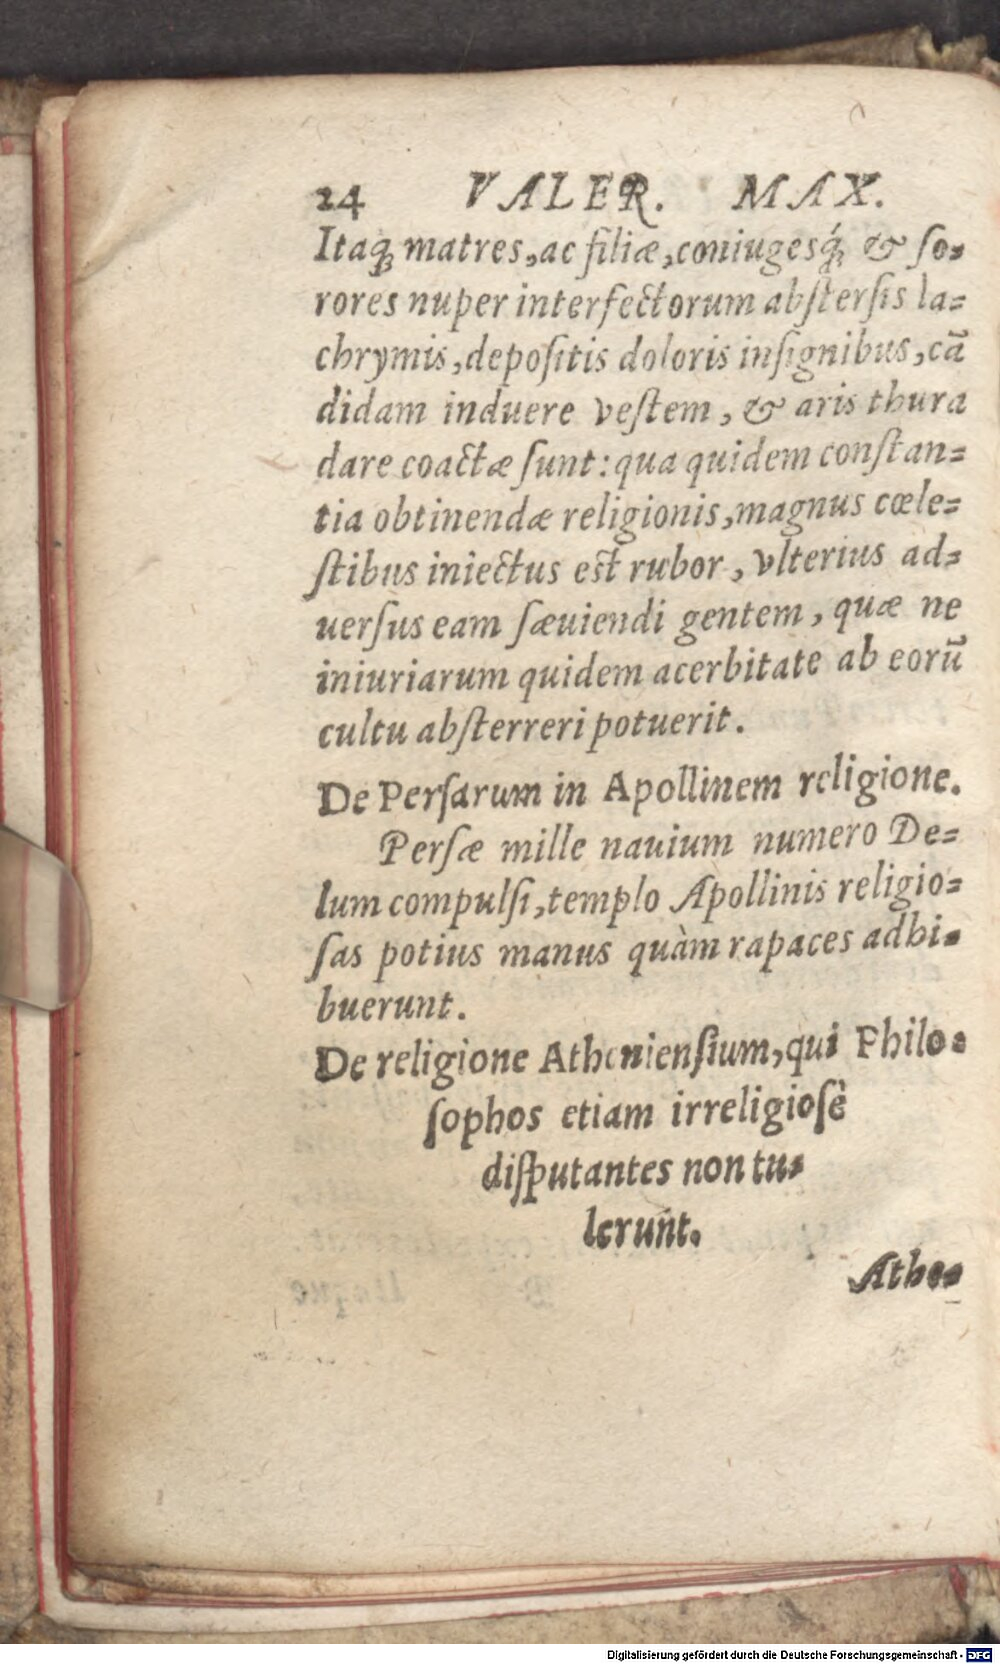 24 VALER. MAX.
Itaq; matres, ac filiæ, coniugesq́; & ſo-
rores nuper interfectorum abſterſis la=
chrymis, depoſitis doloris inſignibus, cã
didam induere veſtem, & aris thura
dare coactæ ſunt: qua quidem conſtan=
tia obtinendæ religionis, magnus cœle=
ſtibus iniectus eſt rubor, vlterius ad=
uerſus eam ſæuiendi gentem, quæ ne
iniuriarum quidem acerbitate ab eorũ
cultu abſterreri potuerit.
De Perſarum in Apollinem religione.
Perſæ mille nauium numero De=
lum compulſi, templo Apollinis religio=
ſas potius manus quàm rapaces adhi-
buerunt.
De religione Athenienſium, qui Philo-
ſophos etiam irreligioſè
diſputantes non tu-
lerunt.
Athe-
Digitalisierung gefördert durch die Deutsche Forschungsgemeinschaft - DFG